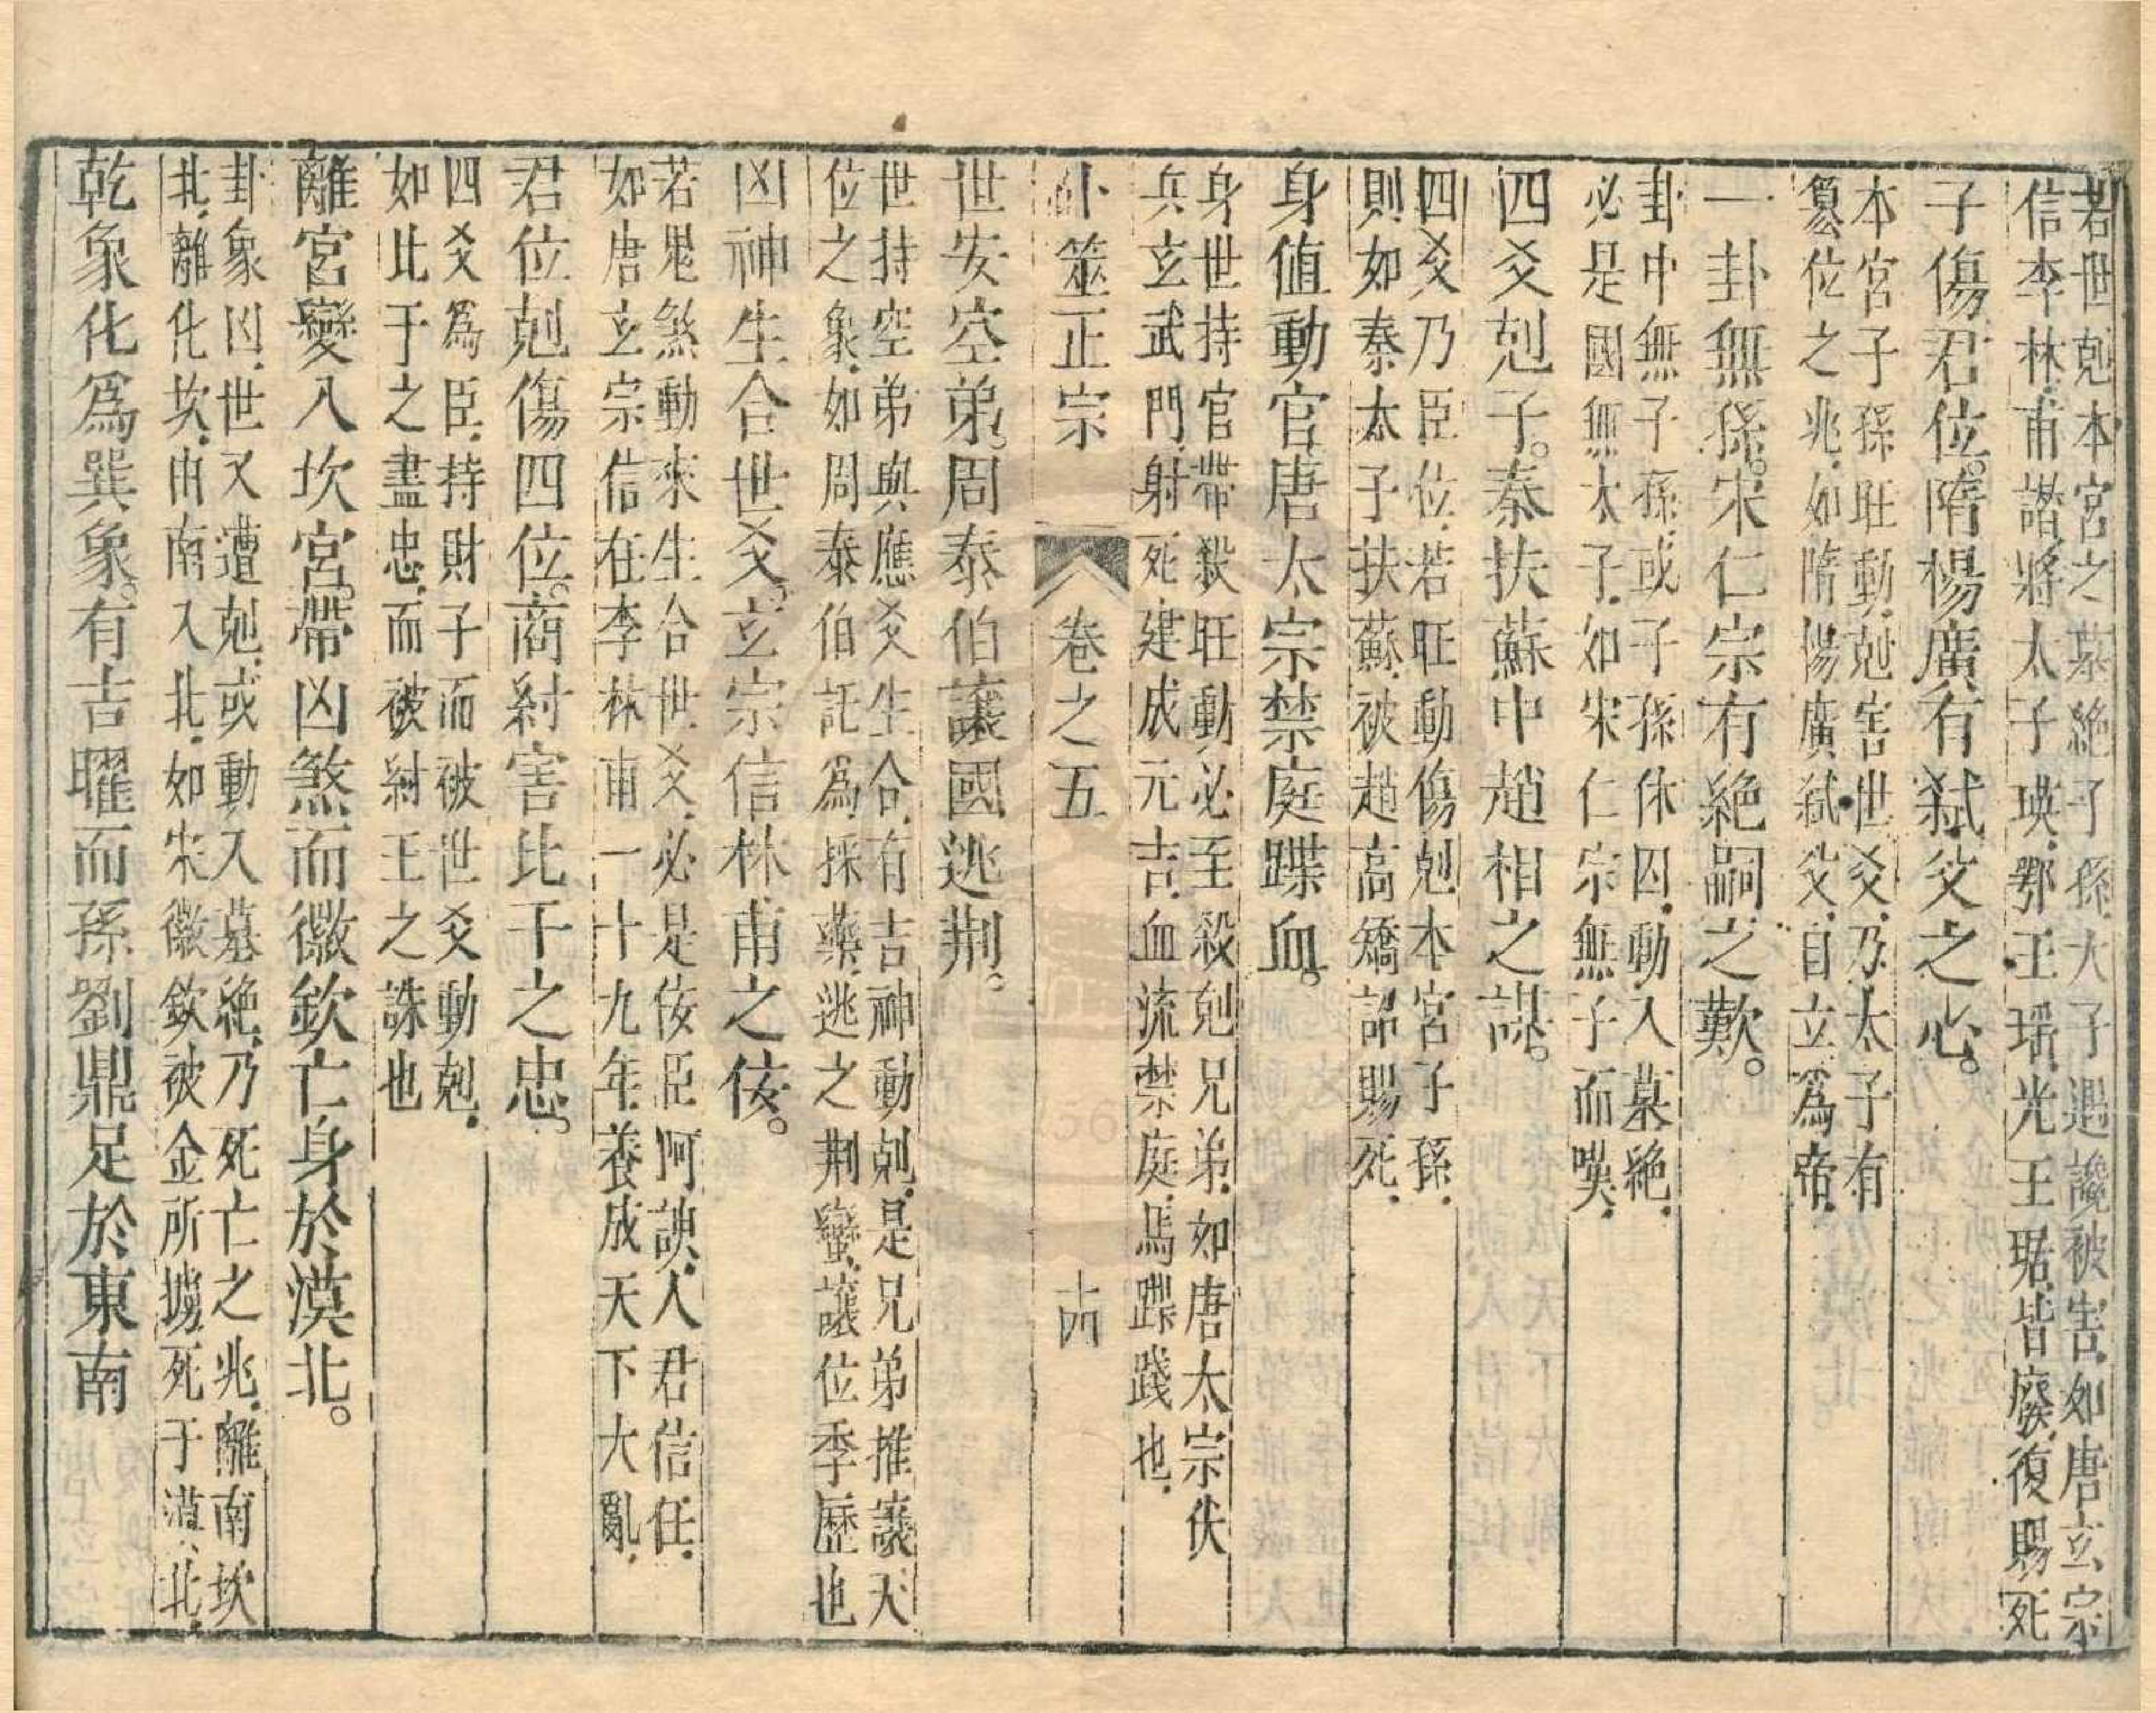 若世剋本宮之墓絶子孫大子遇讒被害如唐玄宗
信李林甫譖將太子瑛鄂王瑶光王琚皆廢復賜死
子傷君位。隋楊廣有弑父之心。
本宮子孫旺動剋害世爻乃太子有
簒位之兆如隋楊廣弑父自立爲帝
一卦無孫。宋仁宗有絶嗣之歎。
卦中無子孫或子孫休囚動入墓絶
必是國無太子如宋仁宗無子而嘆
四爻剋子。秦扶蘇中趙相之謀。
四爻乃臣位若旺動傷剋本宮子孫
則如秦太子扶蘇被趙高矯詔賜死
身值動官唐太宗禁庭蹀血。
身世持官帶殺旺動必至殺剋兄弟如唐太宗伏
兵玄武門射死建成元吉血流禁庭馬蹀踐也
卜筮正宗 卷之五 十四
世安空弟。周泰伯讓國逃荆。
世持空弟與應爻生合有吉神動剋是兄弟推讓大
位之象如周泰伯託爲採藥逃之荆蠻讓位季歷也
凶神生合世爻。玄宗信林甫之佞。
若鬼煞動來生合世爻必是佞臣阿諛人君信任
如唐玄宗信任李林甫一十九年養成天下大亂
君位剋傷四位。商紂害比干之忠。
四爻爲臣持財子而被世爻動剋
如比干之盡忠而被紂王之誅也
離宮變入坎宮。帶凶煞而徽欽亡身於漠北。
卦象凶世又遭剋或動入墓絶乃死亡之兆離南坎
北離化坎由南入北如宋徽欽被金所擄死于漠北
乾象化爲巽象。有吉曜而孫劉鼎足於東南